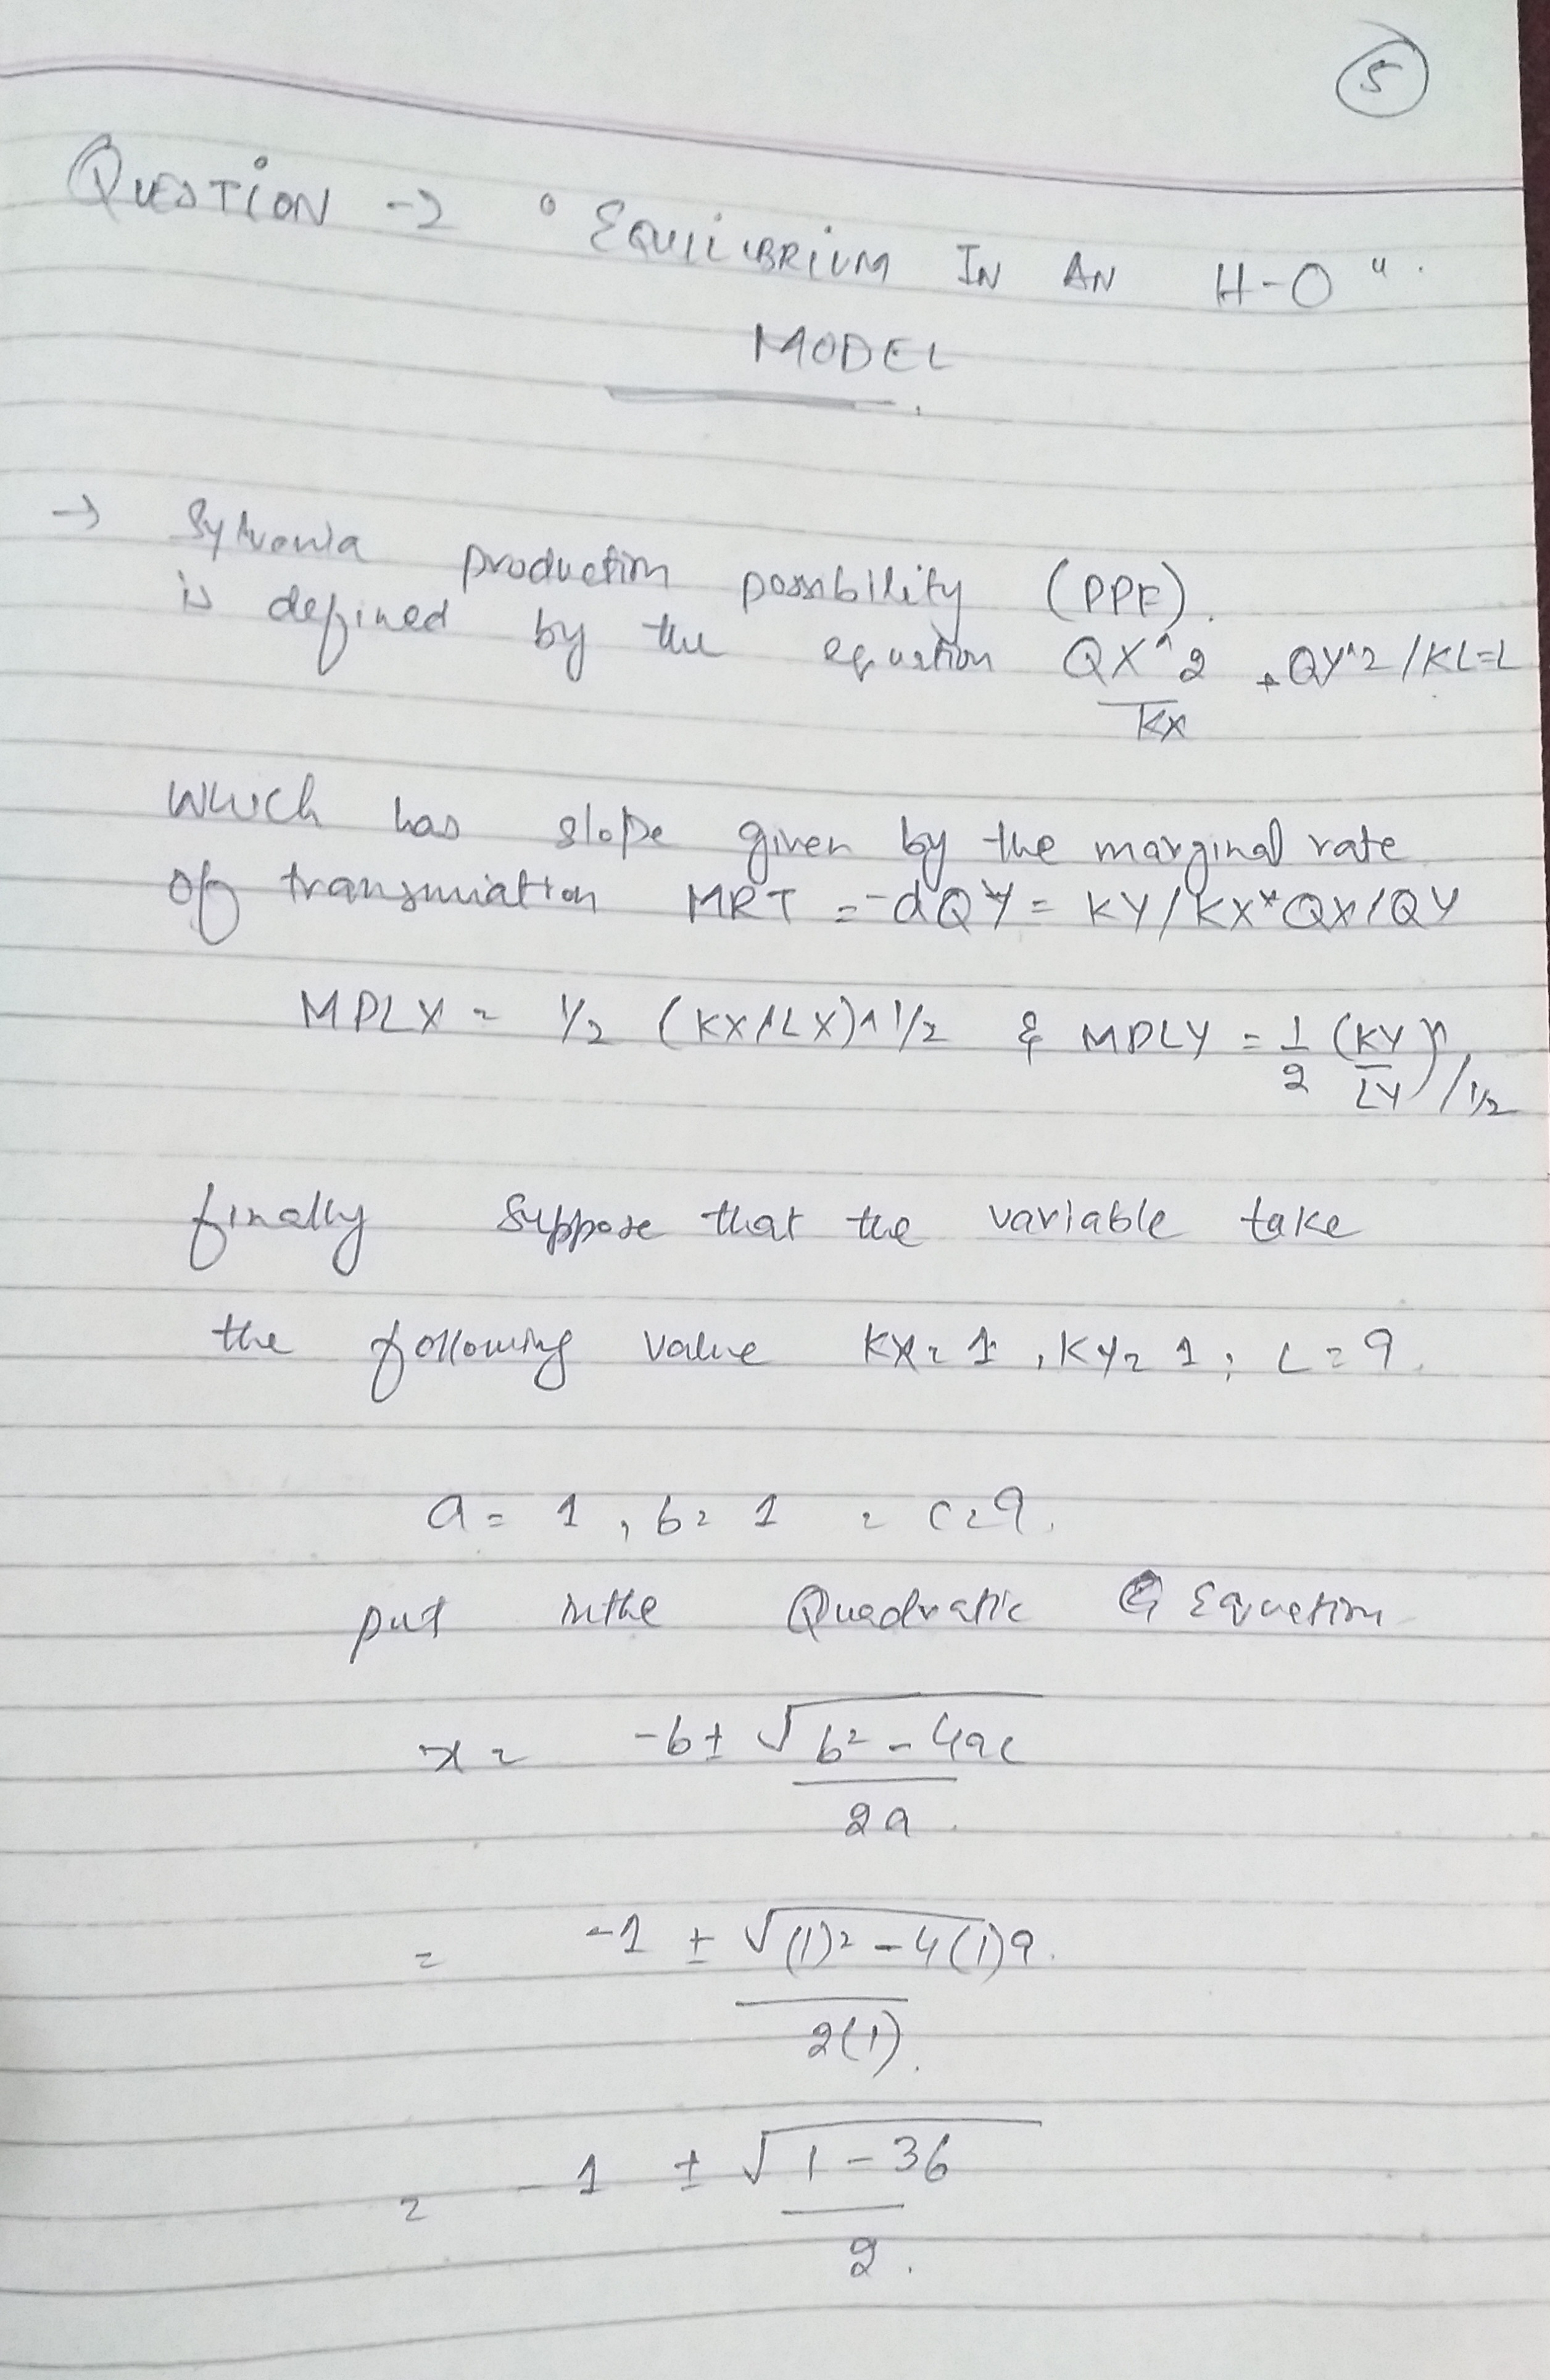 5
QUESTION → "EQUILIBRIUM IN AN H-O".
MODEL
→ Sylvania production possibility (PPF).
is defined by the equation QX^2/KX + QY^2/KL=L
which has slope given by the marginal rate
of MRT =-dQY= KY/KX*QX/QY
MPLX = 1/2 (KX/LX)^1/2 & MPLY = 1/2 (KY/LY)^/1/2
finally suppose that the variable take
the following value KX=1, KY=1, L=9.
a=1, b=1 = c=9.
put in the Quadratic Equation
x = -b± √b²-4ac / 2a.
= -1 ± √(1)²-4(1)9. / 2(1).
= -1 ± √1-36 / 2.